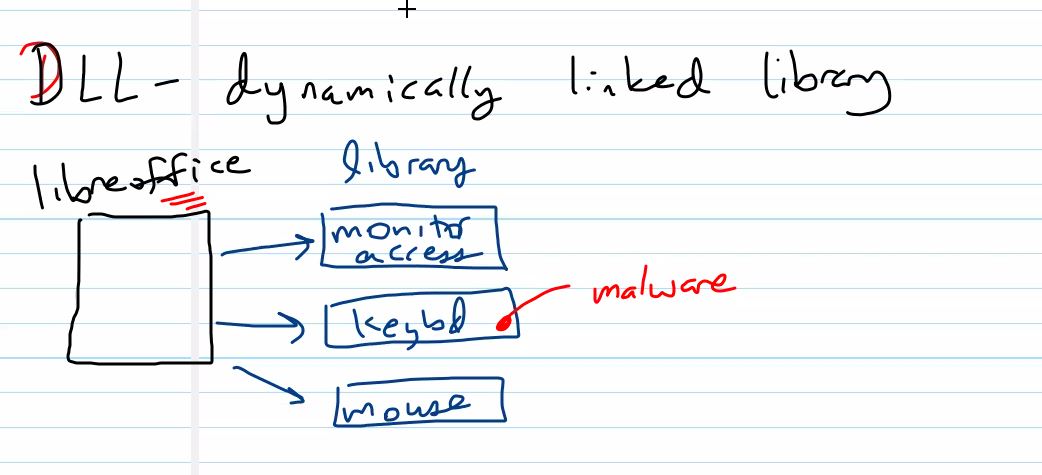 DLL - dynamically linked library
libreoffice
library
monitor
access
keybd
malware
mouse